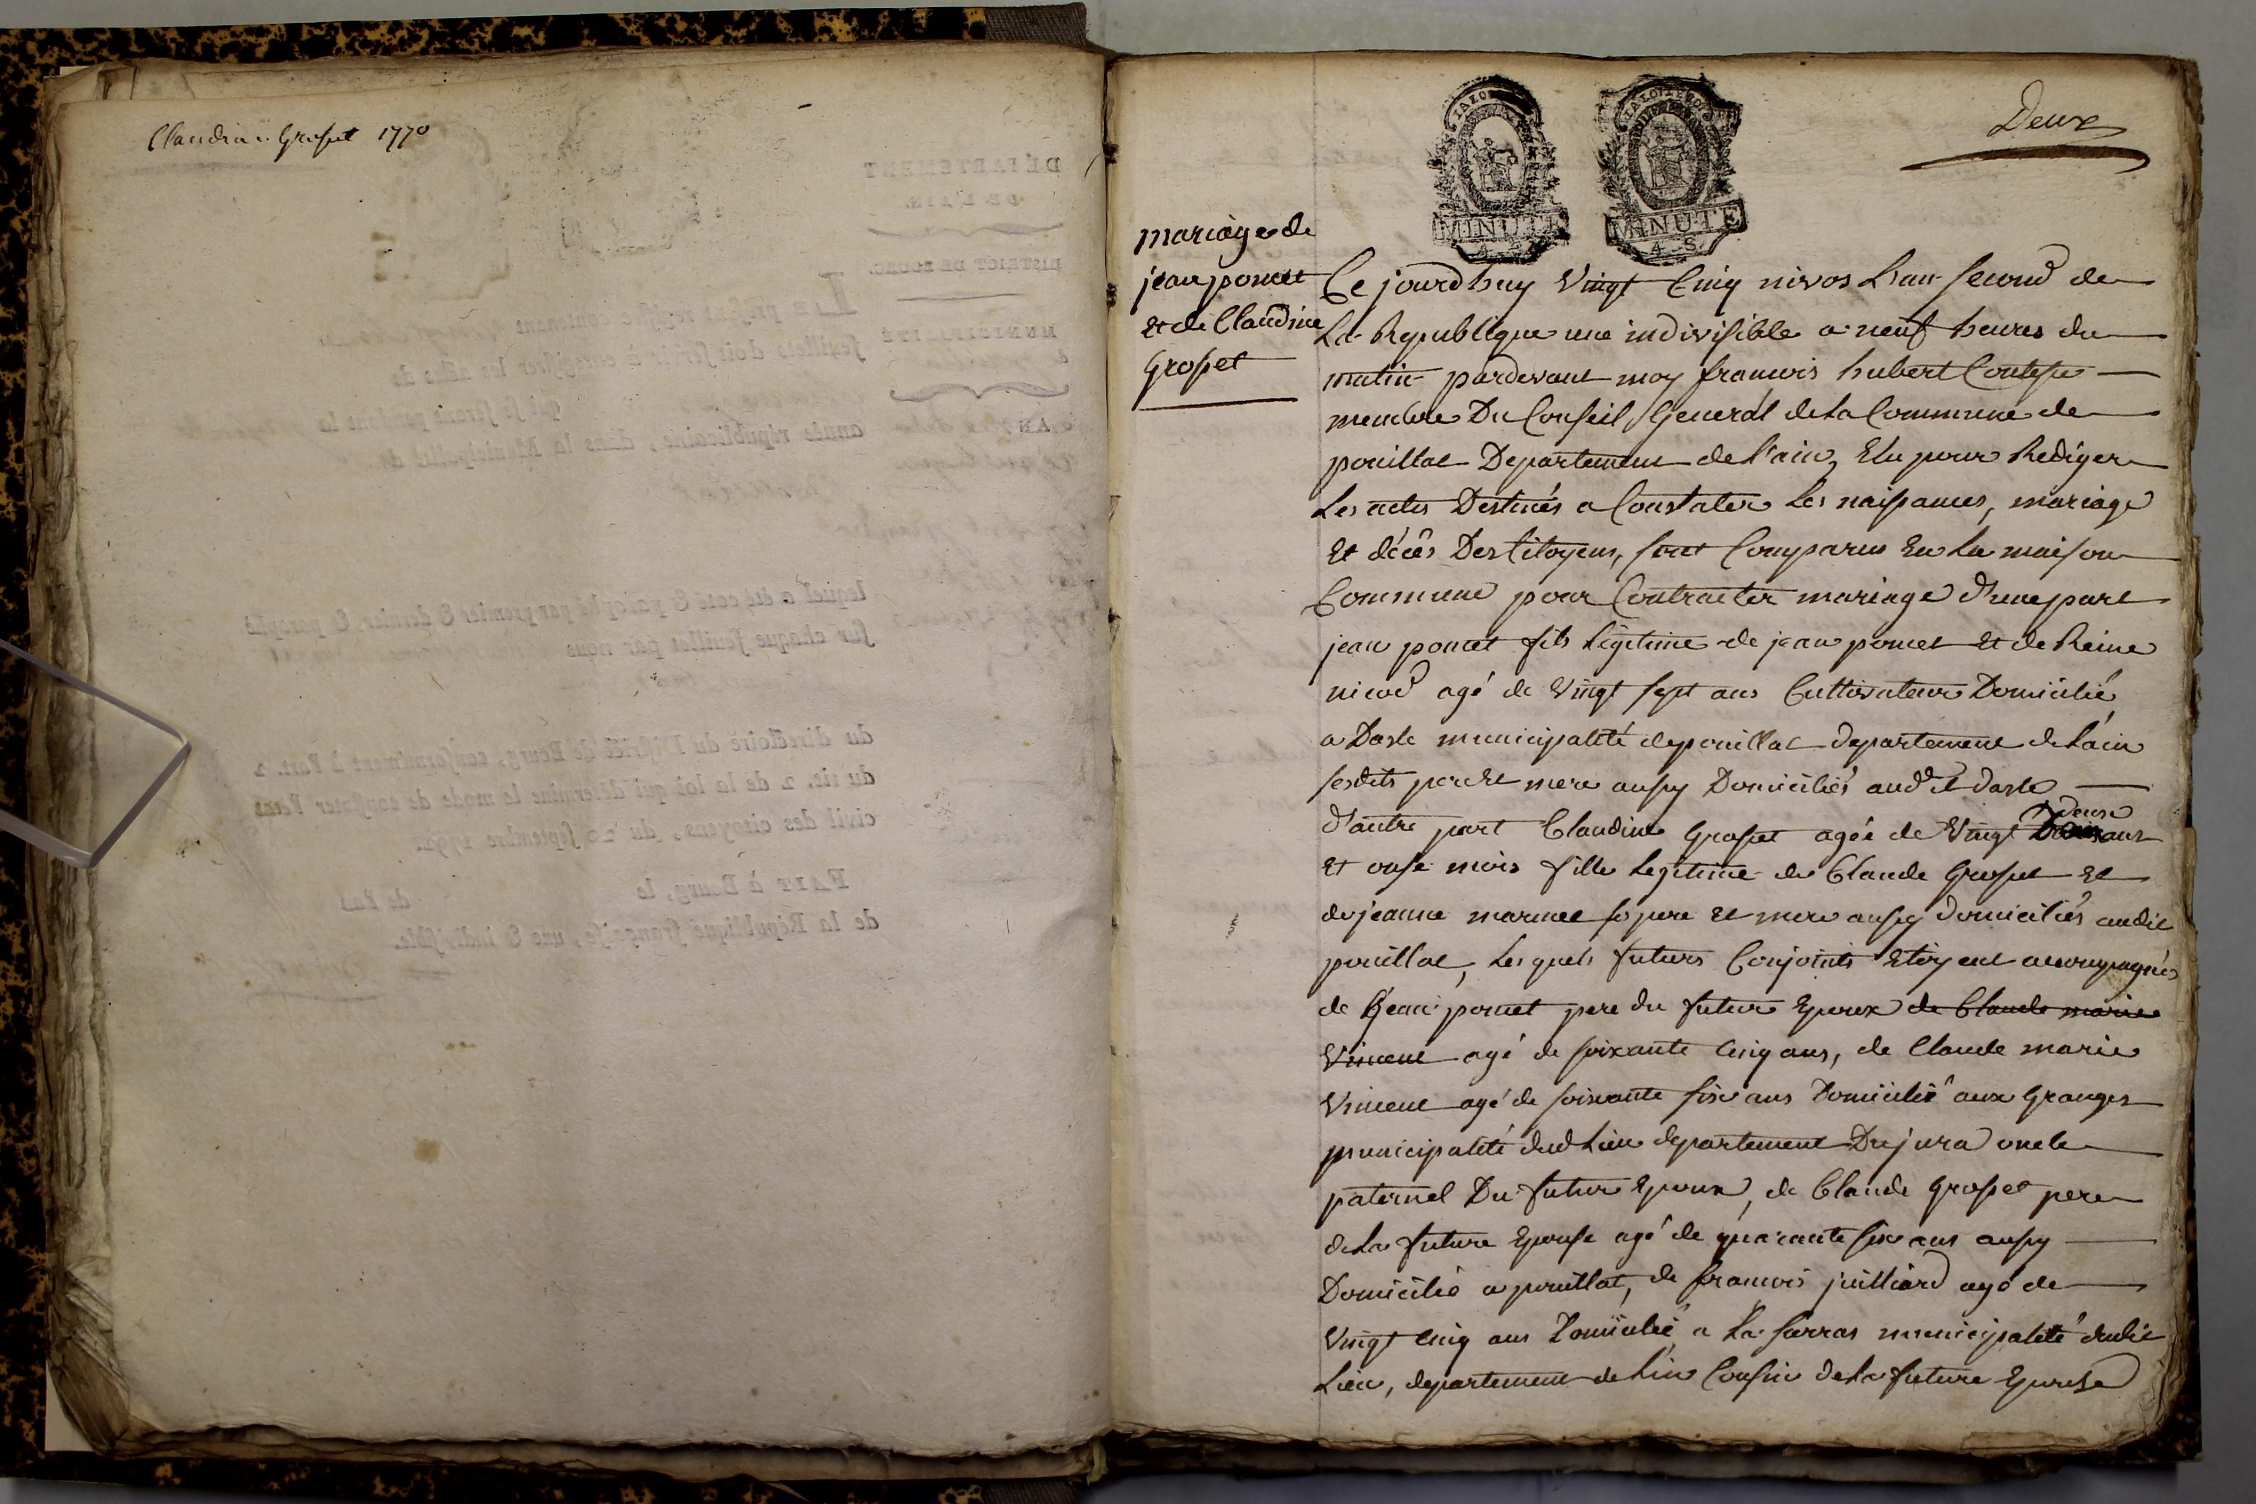 Claudine Grosset 1770
Deux
MINUTE
4 S
MINUTE
4 S
mariage de
jean poncet
et de Claudine
Grosset
Ce jourdhuy Vingt Cinq nivos L'an second de
La Republique une indivisible a neuf heures du
matin pardevant moy francois hubert
membre Du Conseil General de La Commune de
pouillat Departement de l'ain, Elu pour Rediger
Les actes Destinés a Constater Les naissances, mariage
Et décès Des Citoyens, sont Comparus En La maison
Commune pour Contracter mariage d'une part
jean poncet fils Légitime de jean poncet et de Reine
nicod agé de Vingt sept ans Cultivateur Domicilié
a Dasle municipalité de pouillat departement de L'ain
sesdits pere et mere aussy Domiciliés audit dasle
d'autre part Claudine Grosset agée de Vingt deux ans
Et onse mois fille Legitime de Claude Grosset Et
de jeanne marmet ses pere et mere aussy domiciliés audit
pouillat, Lesquels futurs Conjoints Etoyent accompagnés
de jean poncet pere du futur Epoux de Claude marie
Vincent agé de soixante Cinq ans, de Claude marie
Vincent agé de soixante six ans Domicilié aux Granges
municipalité dud Lieu departement Du jura oncle
paternel Du futur Epoux, de Claude Grosset pere
de La future Epouse agé de quarante six ans aussy
Domicilié a pouillat, de francois juilliard agé de
Vingt Cinq ans Domicilié a La municipalité dudit
Lieu, departement de L'ain Cousin de La future Epouse